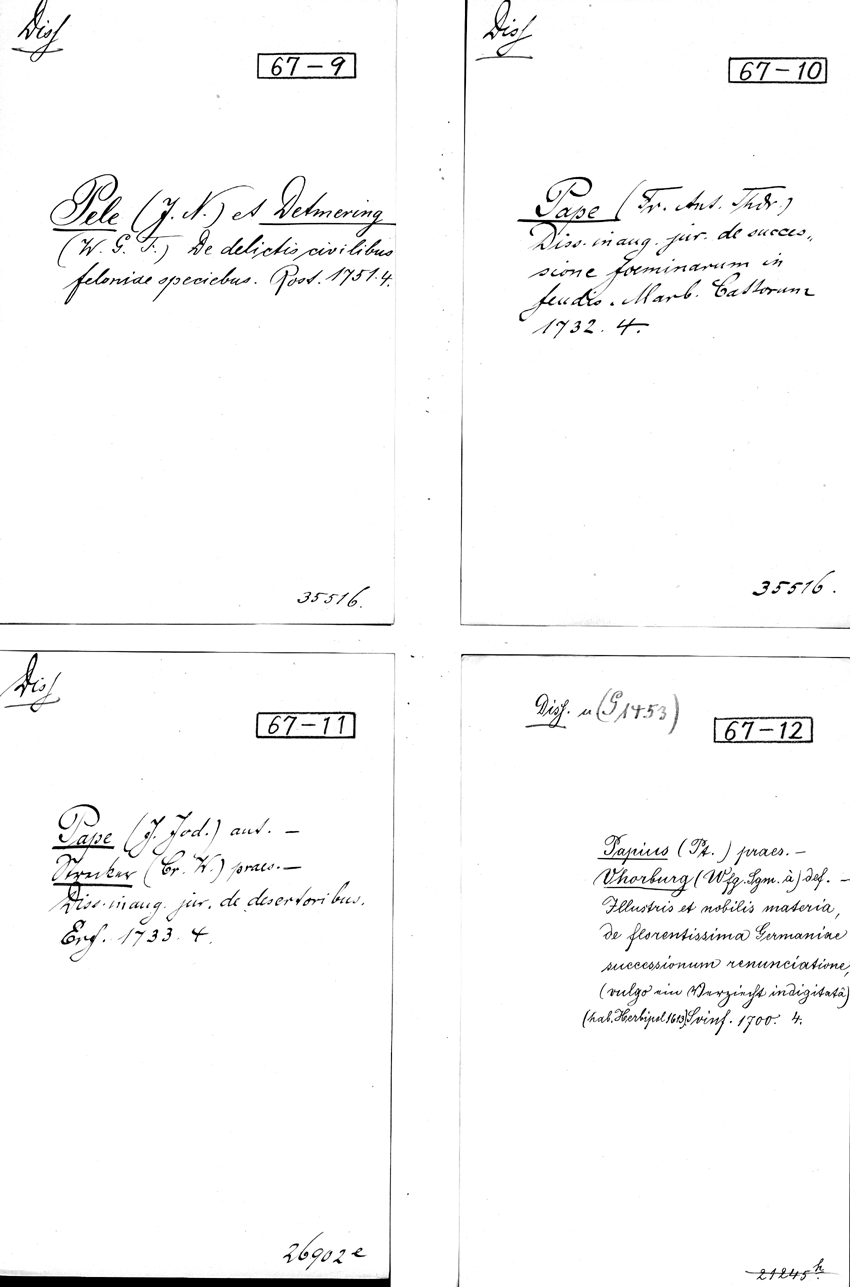 Diss
67-9
Pele (J. N.) et Detmering
(W. G. F.) De delictis civilibus
feloniae speciebus. Rost. 1751. 4.
35516.
Diss
67-10
Pape (Fr. Ant. Thdr.)
Diss. inaug. jur. de succes-
sione foeminarum in
feudis. Marb. Cattorum
1732. 4.
35516.
Diss
67-11
Pape (J. Jod.) aut. —
Strecker (Cr. W.) praes. —
Diss. inaug. jur. de desertoribus.
Erf. 1733. 4.
26902e
Diss. u (G 1453)
67-12
Papius (Pt.) praes. —
Vhorburg (Wfg. Sgm. à) def. —
Illustris et nobilis materia,
de florentissima Germaniae
successionum renunciatione,
(vulgo ein Verziecht indigitatâ)
(hab. Herbipol 1613) Svinf. 1700. 4.
21245h